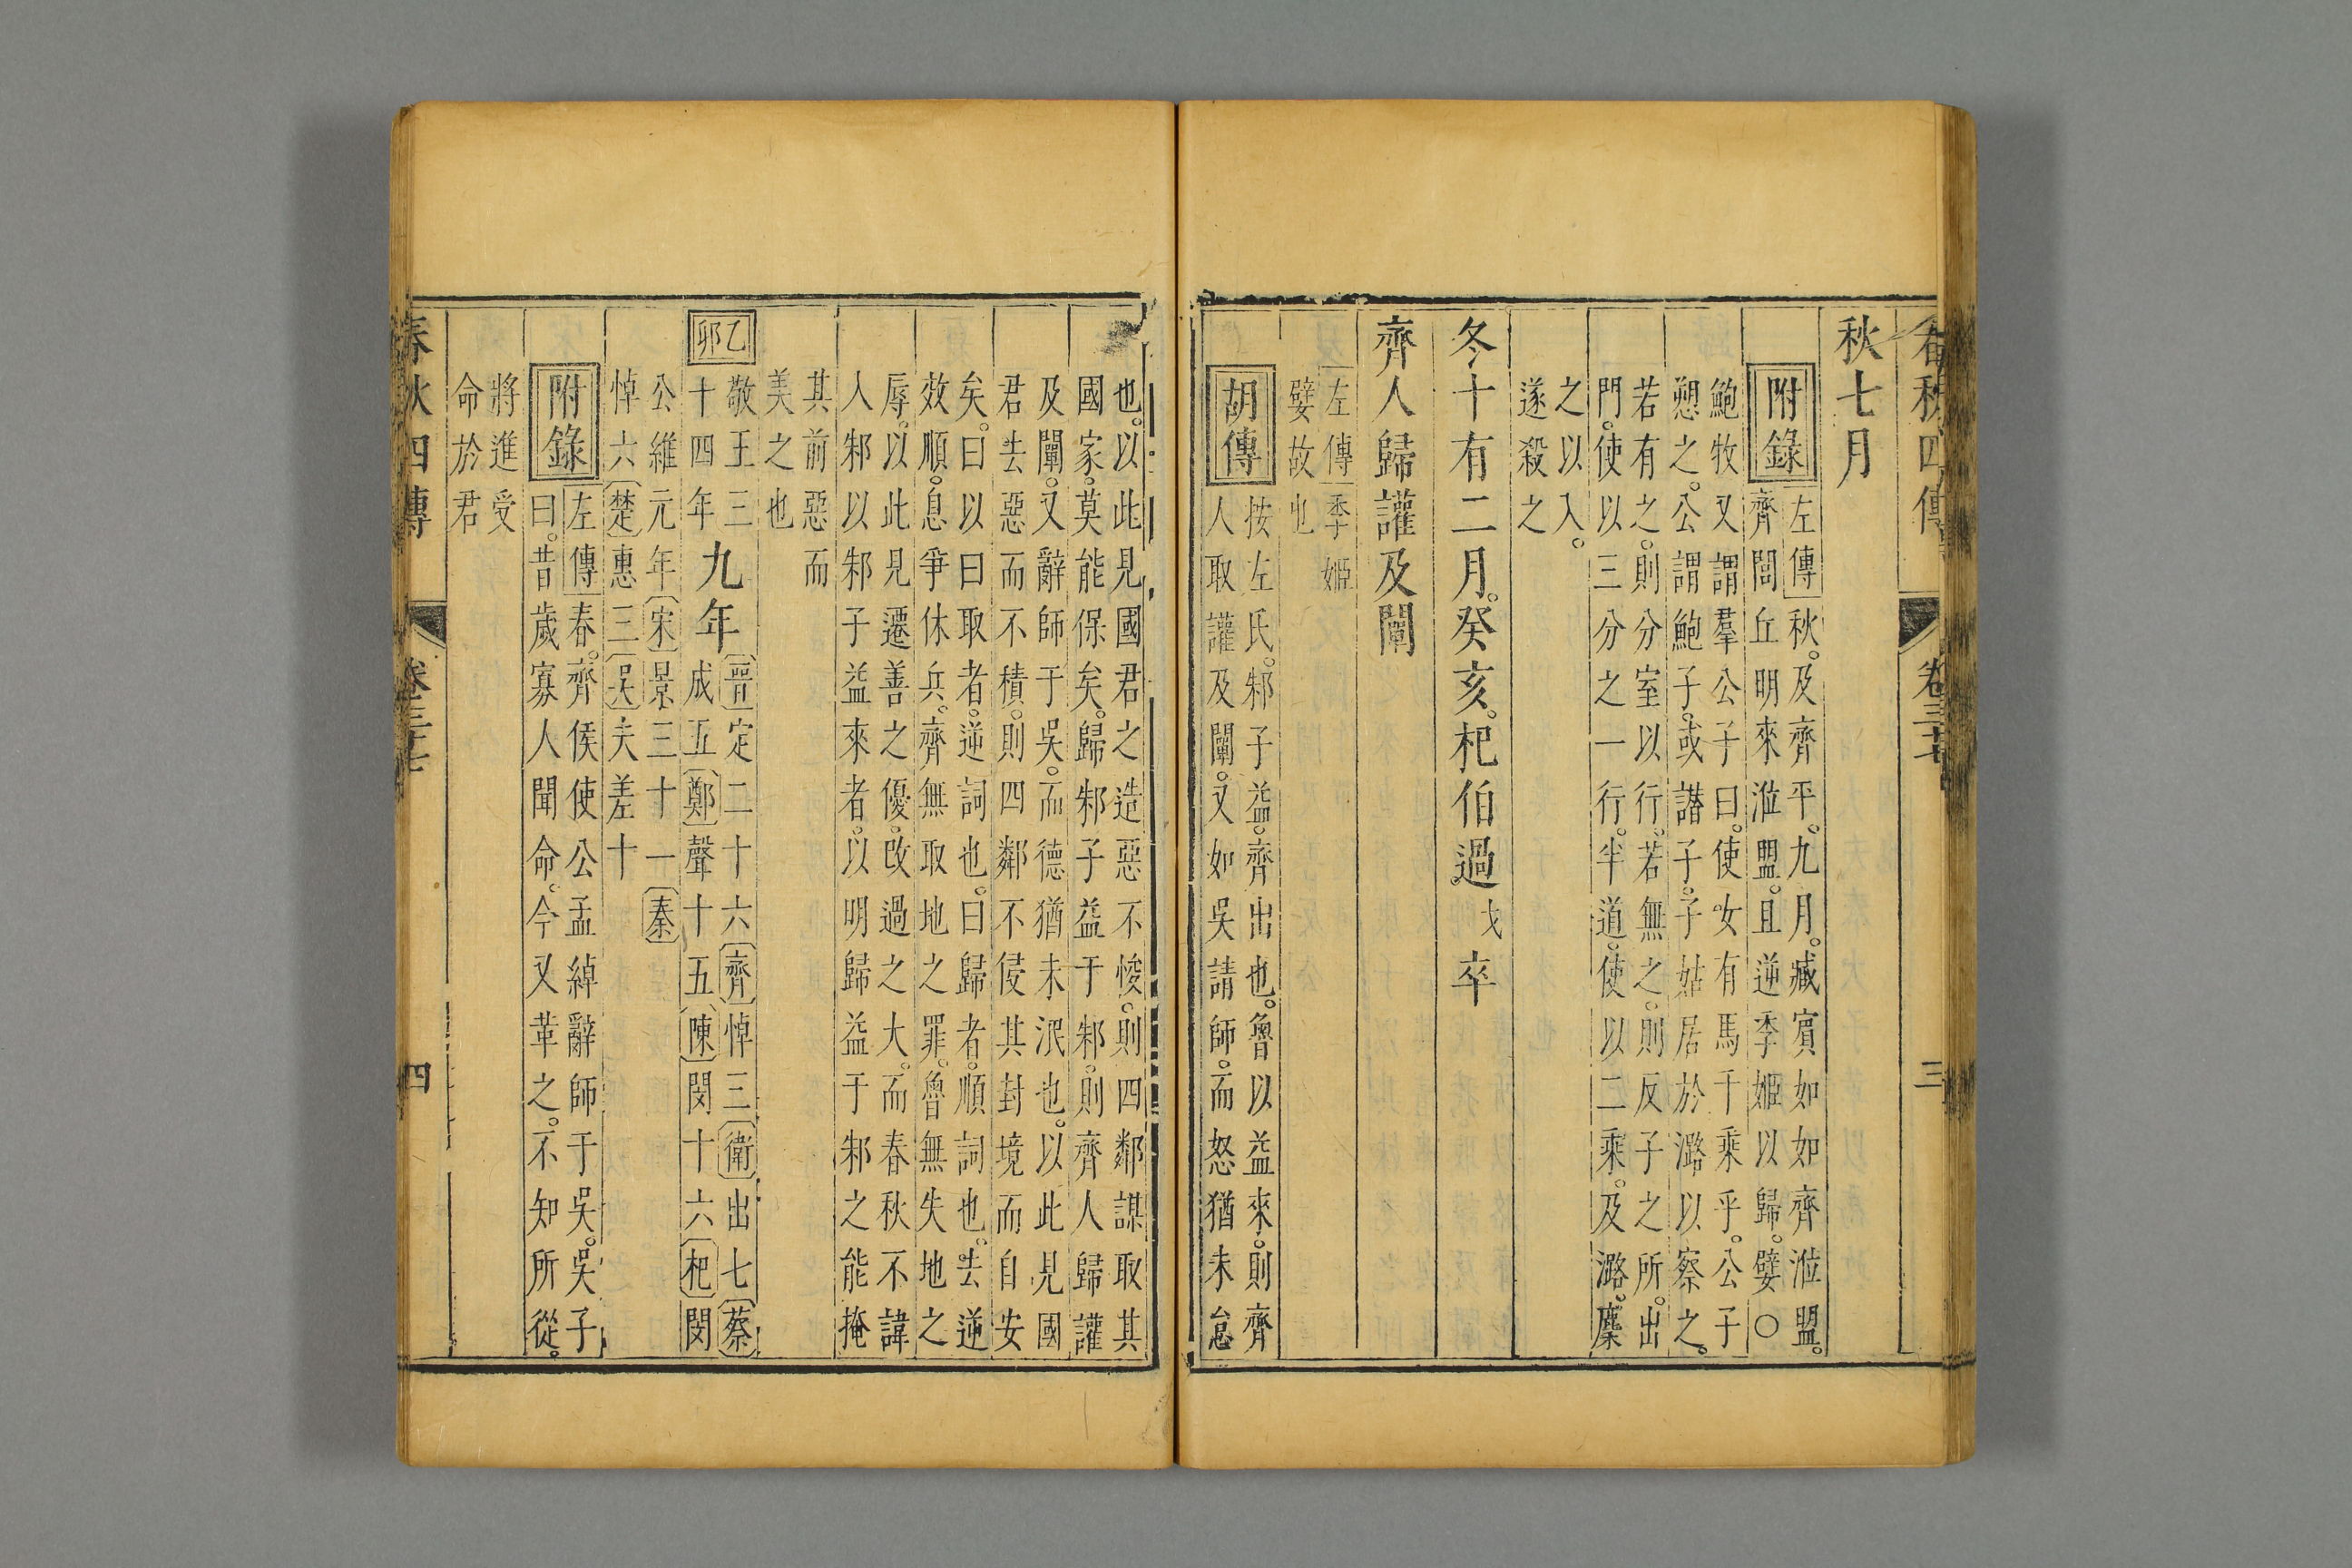 春秋四傳 卷三十七 三
秋七月
附錄 左傳秋。及齊平。九月。臧賓如如齊涖盟。
齊閭丘明來涖盟。且逆季姬以歸。嬖○
鮑牧又謂羣公子曰。使女有馬千乘乎。公子
愬之。公謂鮑子。或譖子。子姑居於潞以察之。
若有之。則分室以行。若無之。則反子之所。出
門。使以三分之一行。半道。使以二乘。及潞。麇
之以入。
遂殺之
冬十有二月。癸亥。杞伯過戈卒
齊人歸讙及闡
左傳季姬
嬖故也
胡傳 按左氏。邾子益。齊出也。魯以益來。則齊
人取讙及闡。又如吳請師。而怒猶未怠
也。以此見國君之造惡不悛。則四鄰謀取其
國家。莫能保矣。歸邾子益于邾。則齊人歸讙
及闡。又辭師于吳。而德猶未泯也。以此見國
君去惡而不積。則四鄰不侵其封境而自安
矣。曰以曰取者。逆詞也。曰歸者。順詞也。去逆
效順。息爭休兵。齊無取地之罪。魯無失地之
辱。以此見遷善之優。改過之大。而春秋不諱
人邾以邾子益來者。以明歸益于邾之能掩
其前惡而
美之也
乙卯
敬王三
十四年
九年
晉定二十六齊悼三衛出七蔡
成五鄭聲十五陳閔十六杞閔
公維元年宋景三十一秦
悼六楚惠三吳夫差十
附錄 左傳春。齊侯使公孟綽辭師于吳。吳子
曰。昔歲寡人聞命。今又革之。不知所從。
將進受
命於君
春秋四傳 卷三十七 四